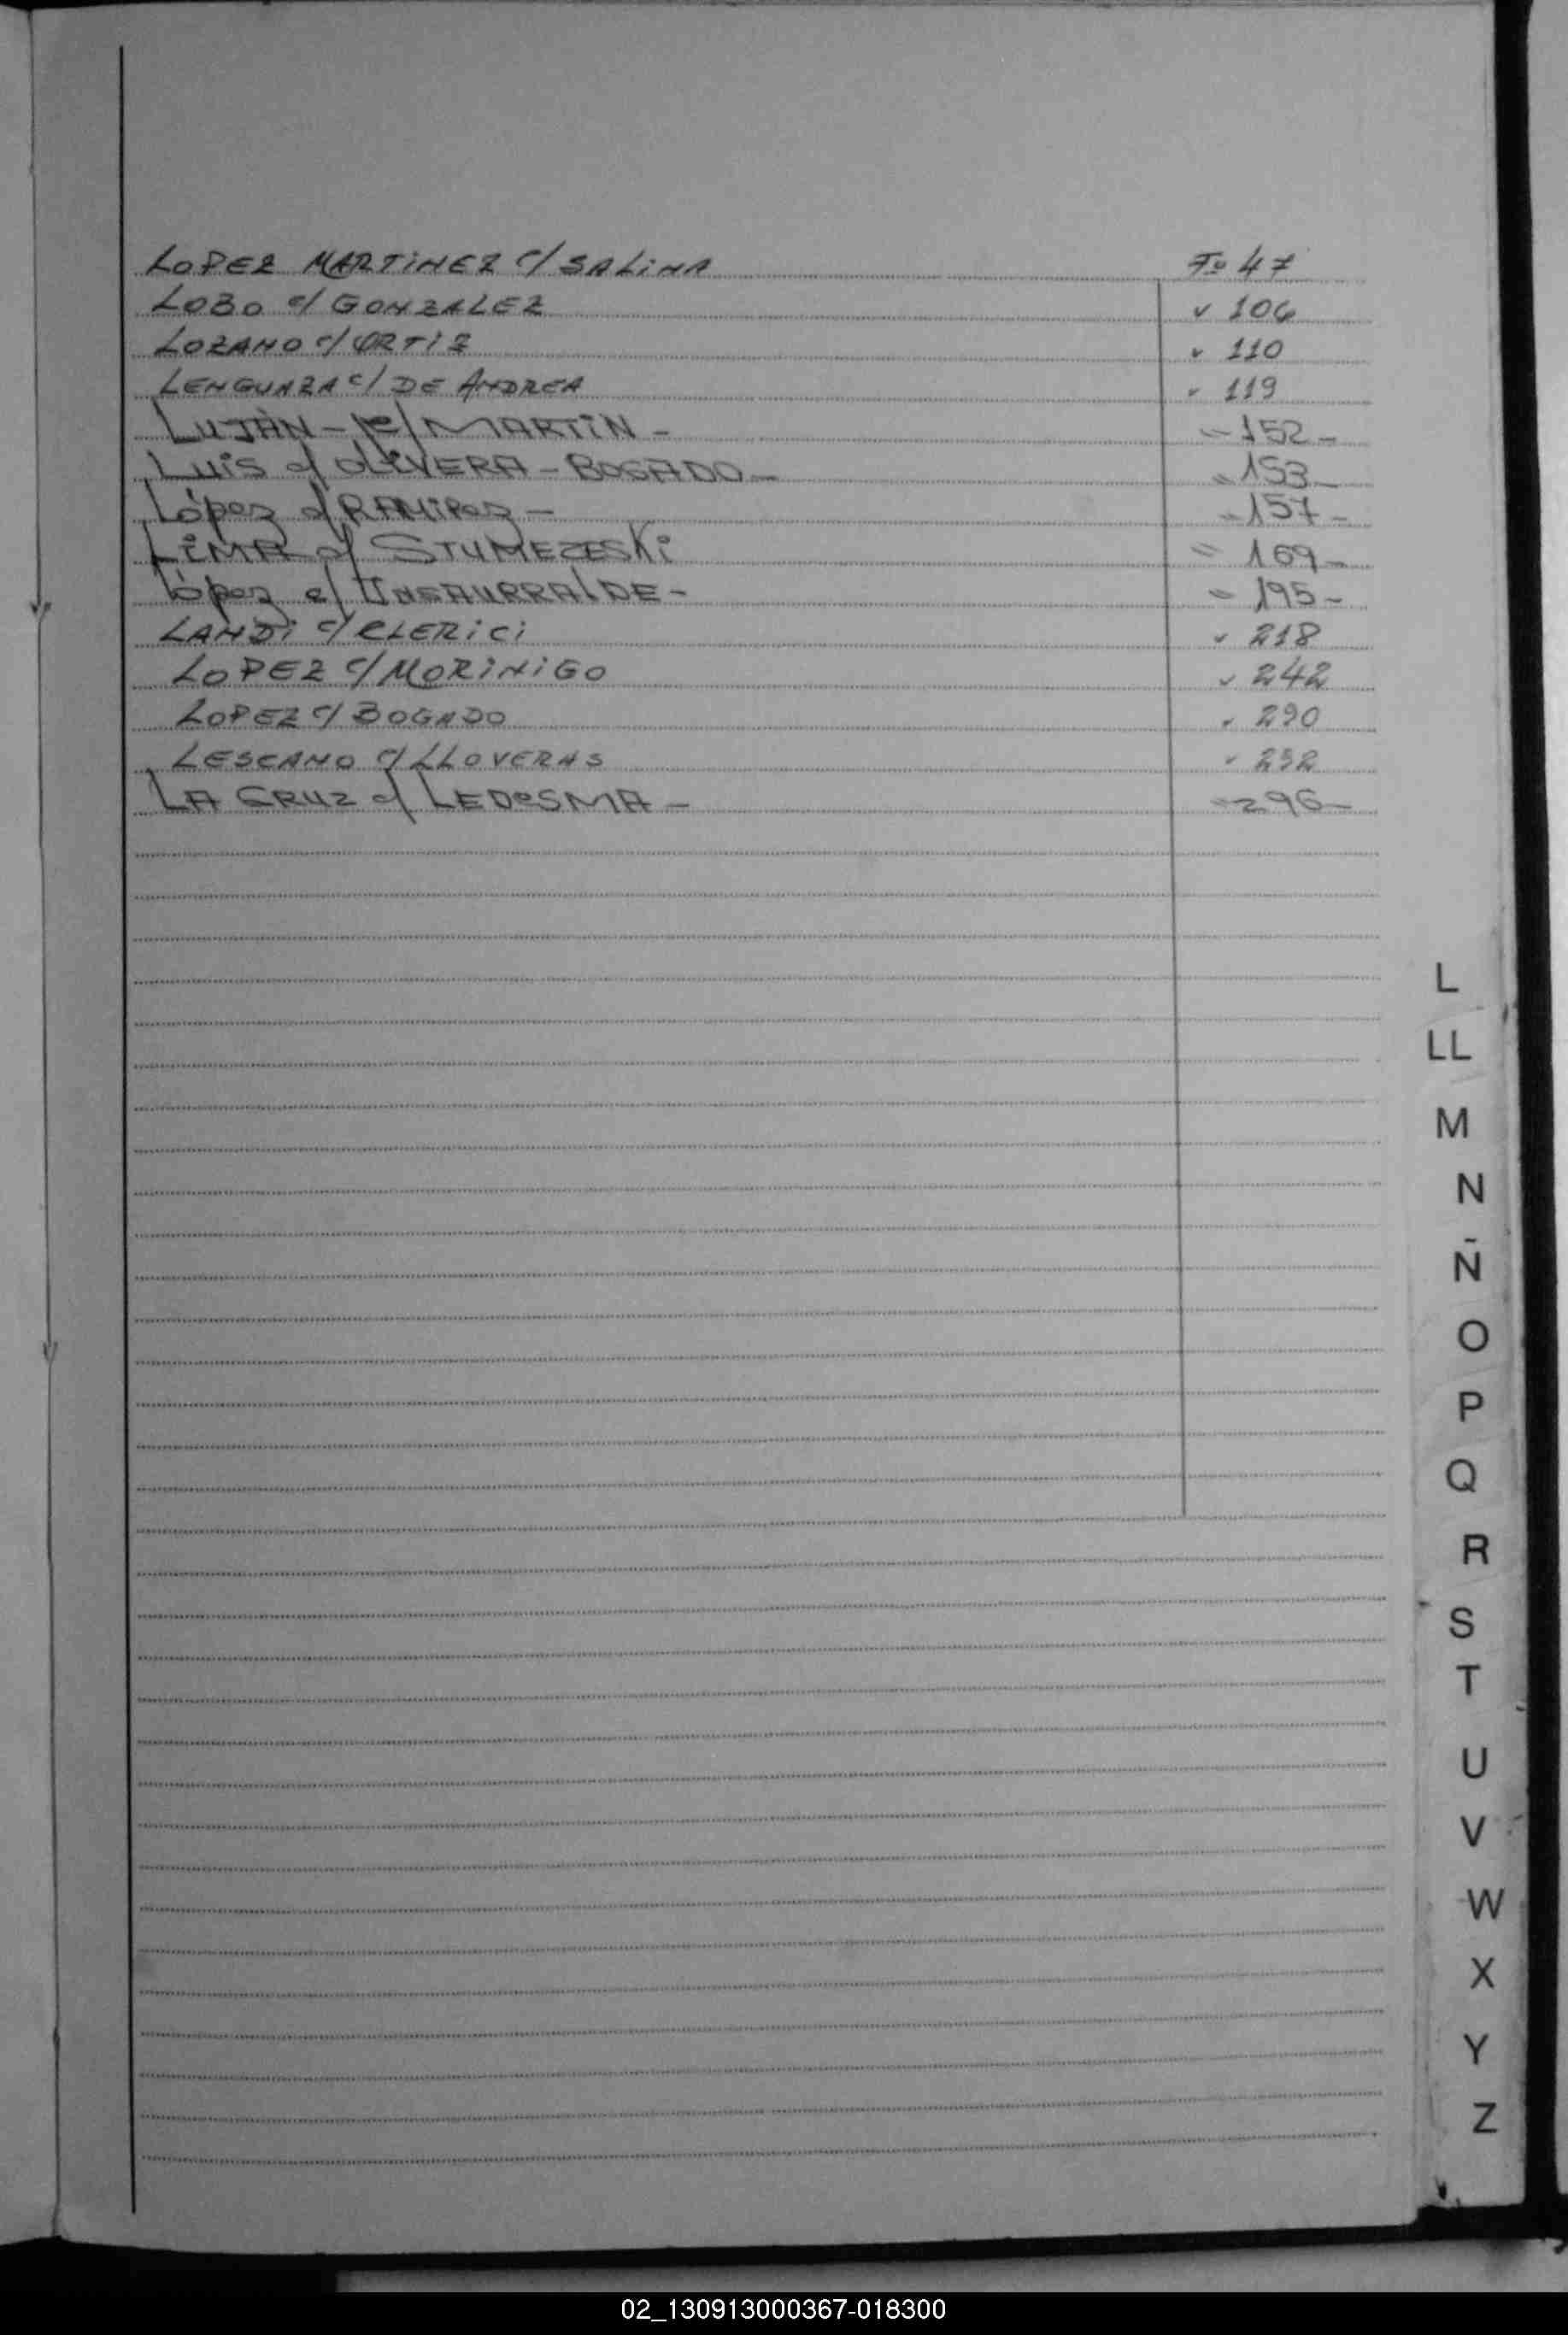 LOPEZ MARTINEZ c/ SALINA Fo 47
LOBO c/ GONZALEZ " 106
LOZANO c/ ORTIZ " 110
LENGUAZA c/ DE ANDREA " 119
LUJÁN - c/ MARTIN - " 152 -
LUIS c/ OLIVERA - BOGADO - " 153 -
López c/ RAMIREZ - " 157 -
LIMA c/ STUMEZESKi " 169 -
López c/ INSAURRALDE - " 195 -
LANDI c/ CLERICI " 218
LOPEZ c/ MORINIGO " 242
LOPEZ c/ BOGADO " 290
LESCANO c/ LLOVERAS " 292
LA CRUZ c/ LEDeSMA - " 296 -
L
LL
M
N
Ñ
O
P
Q
R
S
T
U
V
W
X
Y
Z
02_130913000367-018300